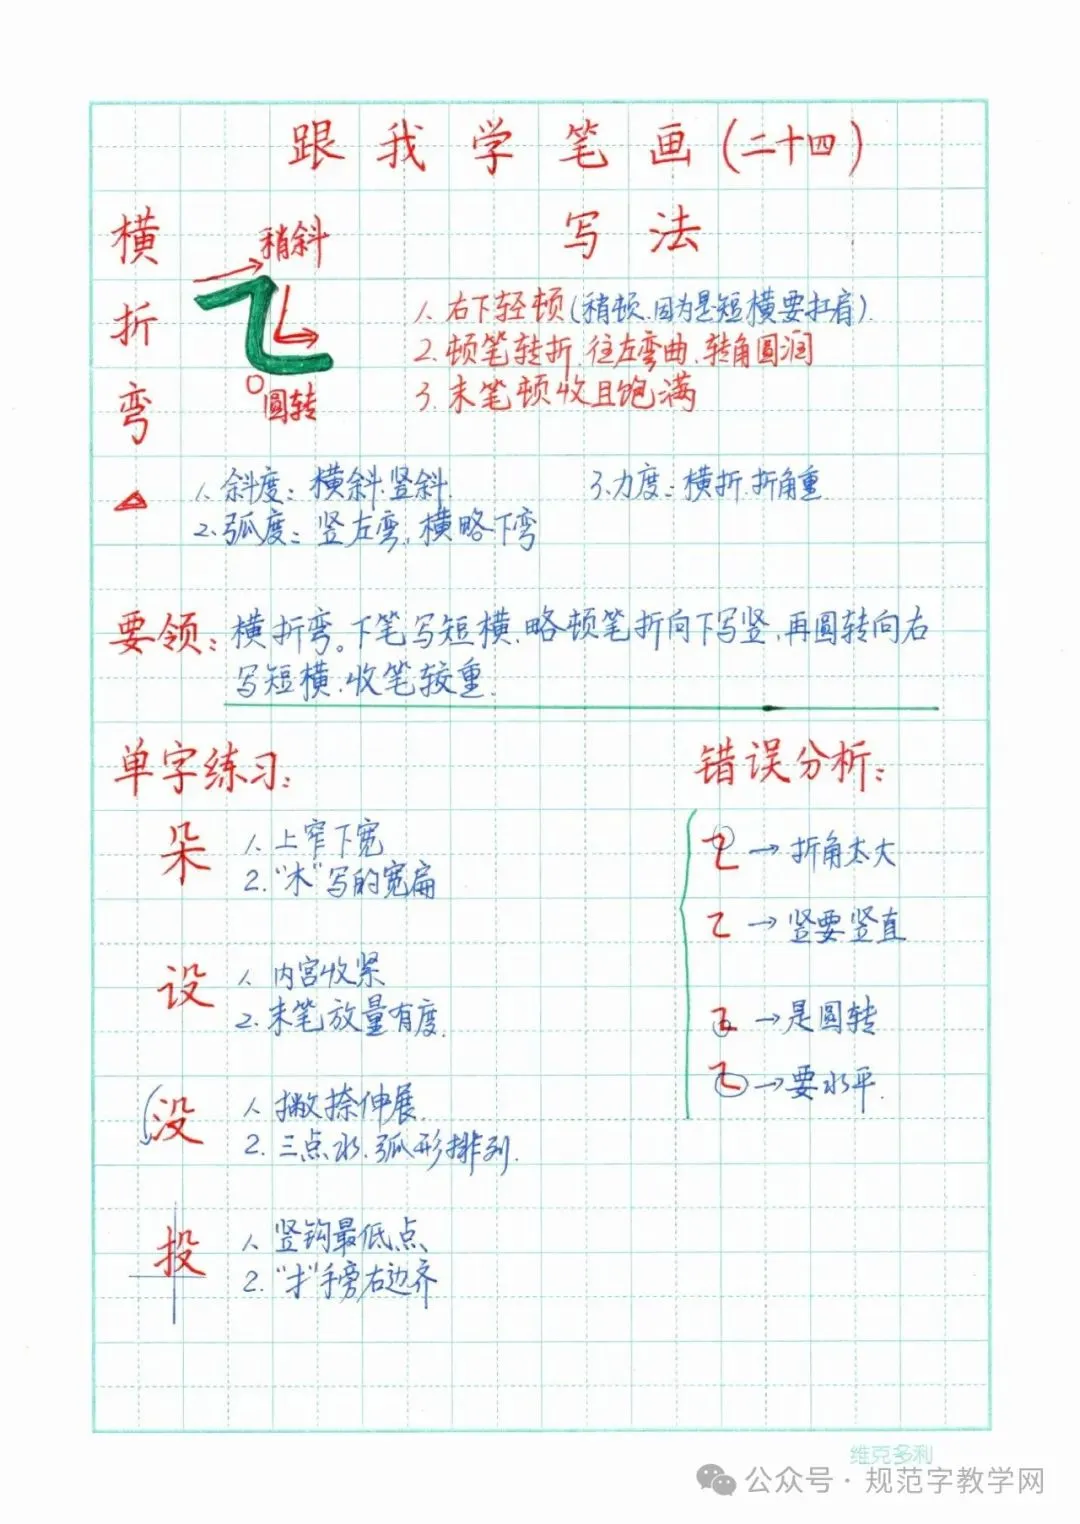 跟我学笔画(二十四)
横折弯
稍斜
圆转
写法
1.右下轻顿(稍顿.因为是短横要扛肩).
2.顿笔转折.往左弯曲.转角圆润
3.末笔顿收且饱满
1.斜度:横斜.竖斜.
3.力度:横折.折角重.
2.弧度:竖左弯,横略下弯
要领:横折弯。下笔写短横.略顿笔折向下写竖.再圆转向右
写短横.收笔较重.
单字练习:
朵
1.上窄下宽
2."木"写的宽扁
设
1.内宫收紧
2.末笔放量有度.
没
1.撇捺伸展.
2.三点水.弧形排列.
投
1.竖钩最低点、
2."扌"手旁右边齐
错误分析:
→折角太大
→竖要竖直
→是圆转
→要水平.
维克多利
公众号·规范字教学网